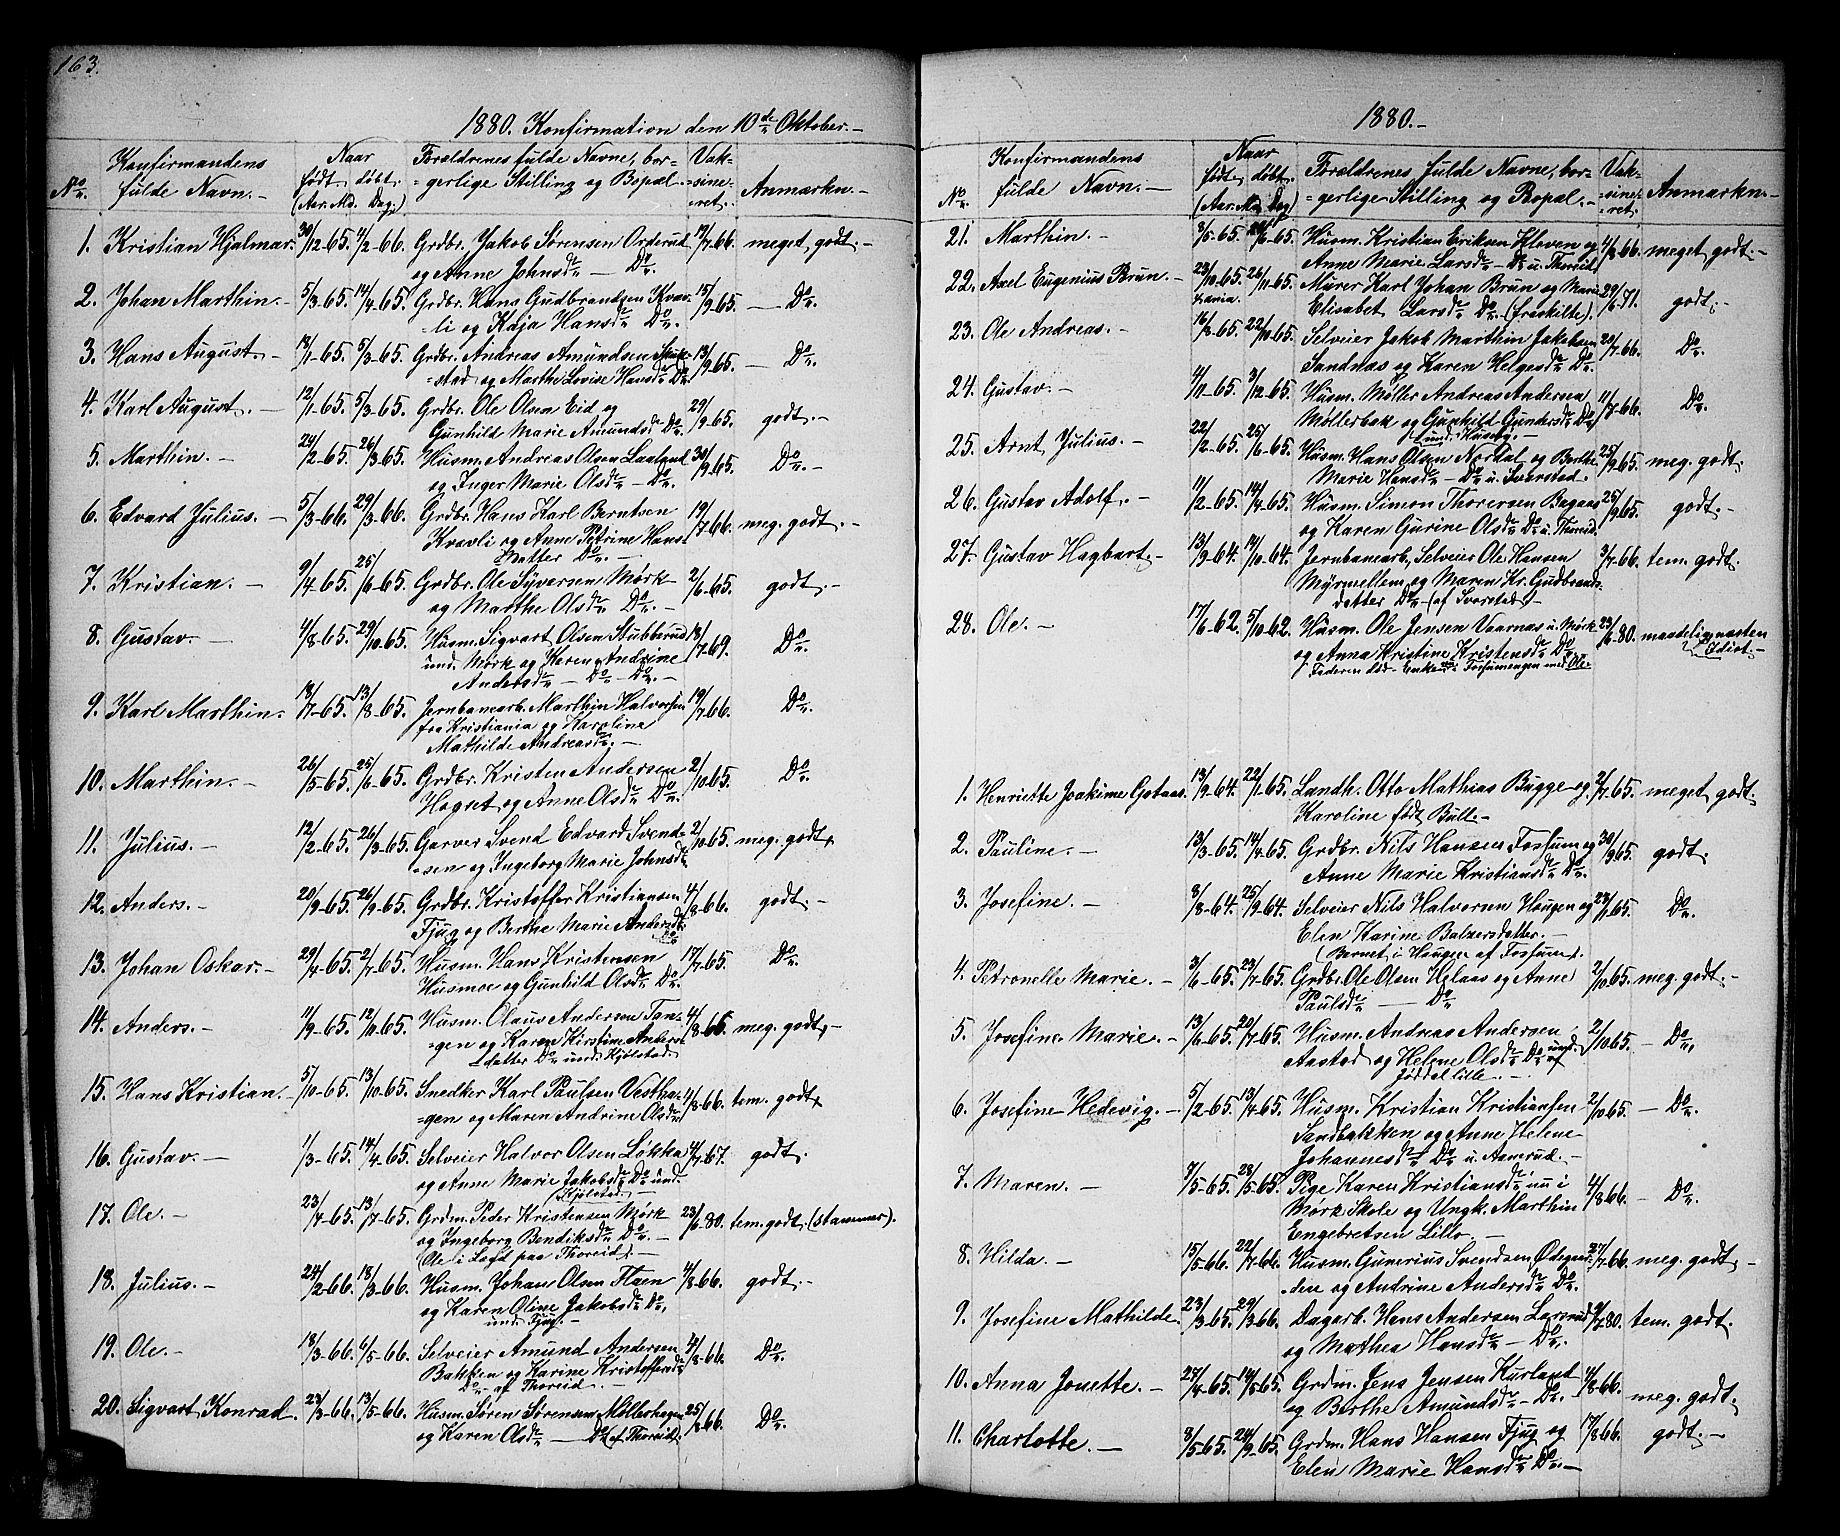 163.
1880. Konfirmation den 10de Oktober.-
No. Konfirmandens fulde Navn.- Naar født døbt (Aar. Md. Dag.) Forældrenes fulde Navne, bor-gerlige Stilling og Bopæl.- Vak-sine-ret. Anmærkn.-
1. Kristian Hjalmar. 30/12-65. 4/2-66. Grdbr. Jakob Sørensen Orderud 19/7-66. meget godt.-
og Anne Johnsdr - Do.
2. Johan Marthin.- 5/3-65. 14/4-65. Grdbr. Hans Gudbrandsen Krav- 15/9-65. - Do.
=li og Kaja Hansdr Do.
3. Hans August.- 13/1-65. 5/3-65. Grdbr. Andreas Amundsen 13/9-65. - Do.
=stad og Marthe Lovise Hansdr Do.
4. Karl August.- 12/1-65. 5/3-65. Grdbr. Ole Olsen Eid og 29/9-65. godt.-
Gunhild Marie Amundsdr Do.
5. Marthin.- 24/2-65. 26/3-65. Husm. Andreas Olsen Laaland 30/9-65. Do.-
og Inger Marie Olsdr - Do.
6. Edvard Julius.- 5/3-66. 29/3-66. Grdbr. Hans Karl Berntsen 19/7-66. meg. godt.-
Kravli og Anne Petrine Hans-
datter Do.-
7. Kristian.- 9/4-65. 25/6-65. Grdbr. Ole Syversen Mørk 2/6-65. godt.-
og Marthe Olsdr Do.-
8. Gustav.- 4/8-65. 29/10-65. Husm. Sigvart Olsen Stubberud 18/7-69. Do.
und. Mørk og Karen Andrine
Andersdr - Do - Do.-
9. Karl Marthin. 18/7-65. 13/8-65. Jernbanearb. Marthin Halvorsen 19/7-66. Do.
fra Kristiania og Karoline
Mathilde Andreasdr.-
10. Marthin.- 26/5-65. 25/6-65. Grdbr. Kristen Andersen 2/10-65. Do.
Hogset og Anne Olsdr Do.
11. Julius.- 12/2-65. 26/3-65. Garver Svend Edvard Svend- 2/10-65. meg. godt.
=sen og Ingeborg Marie Johnsdr
12. Anders.- 20/9-65. 26/9-65. Grdbr. Kristoffer Kristiansen 4/8-66. godt.-
Fjug og Berthe Marie Andersdr
Do
13. Johan Oskar.- 29/4-65. 2/7-65. Husm. Hans Kristensen 17/7-65. Do.
Husmoe og Gunhild Olsdr Do.
14. Anders.- 11/9-65. 12/11-65. Husm. Olaus Andersen Tan- 4/8-66. meg. godt.-
=gen og Karen Kirstine Anders-
datter Do und. Kjølstad.
15. Hans Kristian.- 5/10-65. 13/10-65. Snedker Karl Paulsen Vestha- 4/8-66. tem. godt.
=gen og Maren Andrine Olsdr
16. Gustav.- 1/3-65. 14/4-65. Selveier Halvor Olsen Løkka 4/7-67. godt.
og Anne Marie Jakobsdr Do und.
Kjølstad.-
17. Ole.- 23/4-65. 13/7-65. Grdm. Peder Kristensen Mørk 23/6-80. tem. godt. (stammer).
og Ingeborg Bendiksdr Do.-
(Ole i Løgd paa Thoreid).-
18. Julius.- 24/2-66. 18/3-66. Husm. Johan Olsen Flaen 4/8-66. godt.-
og Karen Oline Jakobsdr Do.
und. Fjug.-
19. Ole.- 18/3-66. 6/5-66. Selveier Amund Andersen 4/8-66. Do.
Bakken og Karine Kristoffersdr
Do. af Thoreid.-
20. Sigvart Konrad. 23/3-66. 13/5-66. Husm. Søren Sørensen Møllerhagen 25/8-66. Do.
og Karen Olsdr - Do (af Thoreid).
1880.-
No. Konfirmandens fulde Navn.- Naar født døbt (Aar. Md. Dag) Forældrenes fulde Navne, bor-=gerlige Stilling og Bopæl.- Vak-=sine-ret. Anmærkn.-
21. Marthin.- 8/5-65. /6-65. Husm. Kristian Eriksen Kleven og 4/8-66. meget godt.-
Anne Marie Larsdr - Do u. Thoreid
22. Axel Eugenius Brun.- 23/10-65. 26/11-65. Murer Karl Johan Brun og Marie 29/6-71. godt.-
Elisabet Larsdr Do.- (fraskilte).
23. Ole Andreas.- 16/8-65. 22/10-65. Selveier Jakob Marthin Jakobsen 20/7-66. Do.
Sandnæs og Karen Helgesdr Do.
24. Gustav.- 4/11-65. 3/12-65. Husm. Møller Andreas Andersen 11/7-66. Do.
Møllerbak og Gunhild Gundersdr Do
und. Huseby.-
25. Arnt Julius.- 22/2-65. 25/6-65. Husm. Hans Olsen Nordal og Berthe 25/9-65. meg. godt.
Marie Hansdr - Do u. Svarstad.
26. Gustav Adolf.- 11/2-65. 14/4-65. Husm. Simon Thoresen Bagaas 25/9-65. godt.-
og Karen Gurine Olsdr Do u. Thoreid.
27. Gustav Hagbart.- 13/9-64. 14/10-64. Jernbanearb. Selveier Ole Hansen 3/7-66. tem. godt.
Myrmellem og Maren Kr. Gudbrands-
datter Do.- (af Svarstad).-
28. Ole.- 17/6-62. 5/10-62. Husm. Ole Jensen Vaarnæs u. Mørk 23/6-80. maadelig næsten
og Anna Kristine Kristensdr Do Idiot.-
Faderen død - Enken Fossumengen med Ole.
1. Henriette Joakime Gotaas. 13/9-64. 22/1-65. Landh. Otto Mathias Bugge og 2/7-65. meget godt.
Karoline født Bull.-
2. Pauline.- 13/3-65. 14/4-65. Grdbr. Nils Hansen Fossum og 30/9-65. godt.
Anne Marie Kristiansdr Do.
3. Josefine.- 8/8-64. 25/9-64. Selveier Nils Halvorsen Haugen og 23/1-65. Do.
Elen Karine Balzersdatter.-
(Barnet i Haugen af Fossum).
4. Petronelle Marie.- 3/6-65. 23/7-65. Grdbr. Ole Olsen Helaas og Anne 2/10-65. meg. godt.-
Paulsdr - Do
5. Josefine Marie.- 13/6-65. 20/7-65. Husm. Andreas Andersen 2/10-65. - Do.
Aastad og Helene Olsdr Do und.
Jøddal lille.-
6. Josefine Hedevig.- 5/2-65. 13/4-65. Husm. Kristian Kristiansen 2/10-65. - Do.
Sandbakken og Anne Helene
Johannesdr Do u. Aamrud.-
7. Maren.- 7/5-65. 28/5-65. Pige Karen Kristiansdr nu i 4/8-66. - Do.
Mørk Skole og Ungk. Marthin
Engebretsen Lillo.-
8. Hilda.- 15/5-66. 22/7-66. Husm. Gunerius Svendsen Ødegaar- 27/7-66. meg. godt.-
=den og Andrine Andersdr Do.
9. Josefine Mathilde. 23/3-65. 29/3-66. Dagarb. Hans Andersen 9/7-80. tem. godt.
og Mathea Hansdr - Do.
10. Anna Jonette.- 27/4-65. 14/5-65. Grdm. Jens Jensen Kurland 4/8-66. meg. godt.
og Berthe Amundsdr - Do.
11. Charlotte.- 8/5-65. 24/9-65. Grdm. Hans Hansen Fjug og 17/8-66. godt.-
Elen Marie Hansdr Do.-